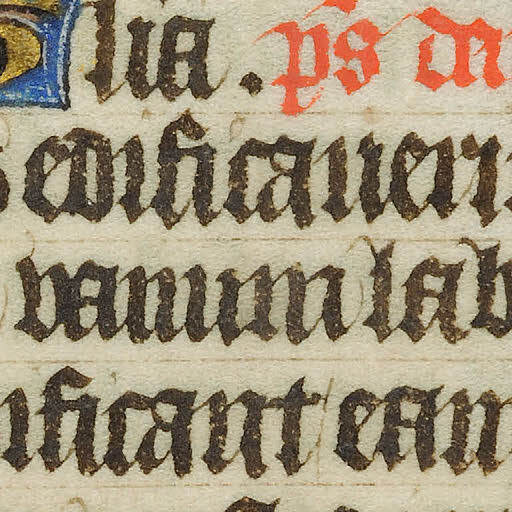 lia . ps da
edificaueri
uanum lab
ificant eam